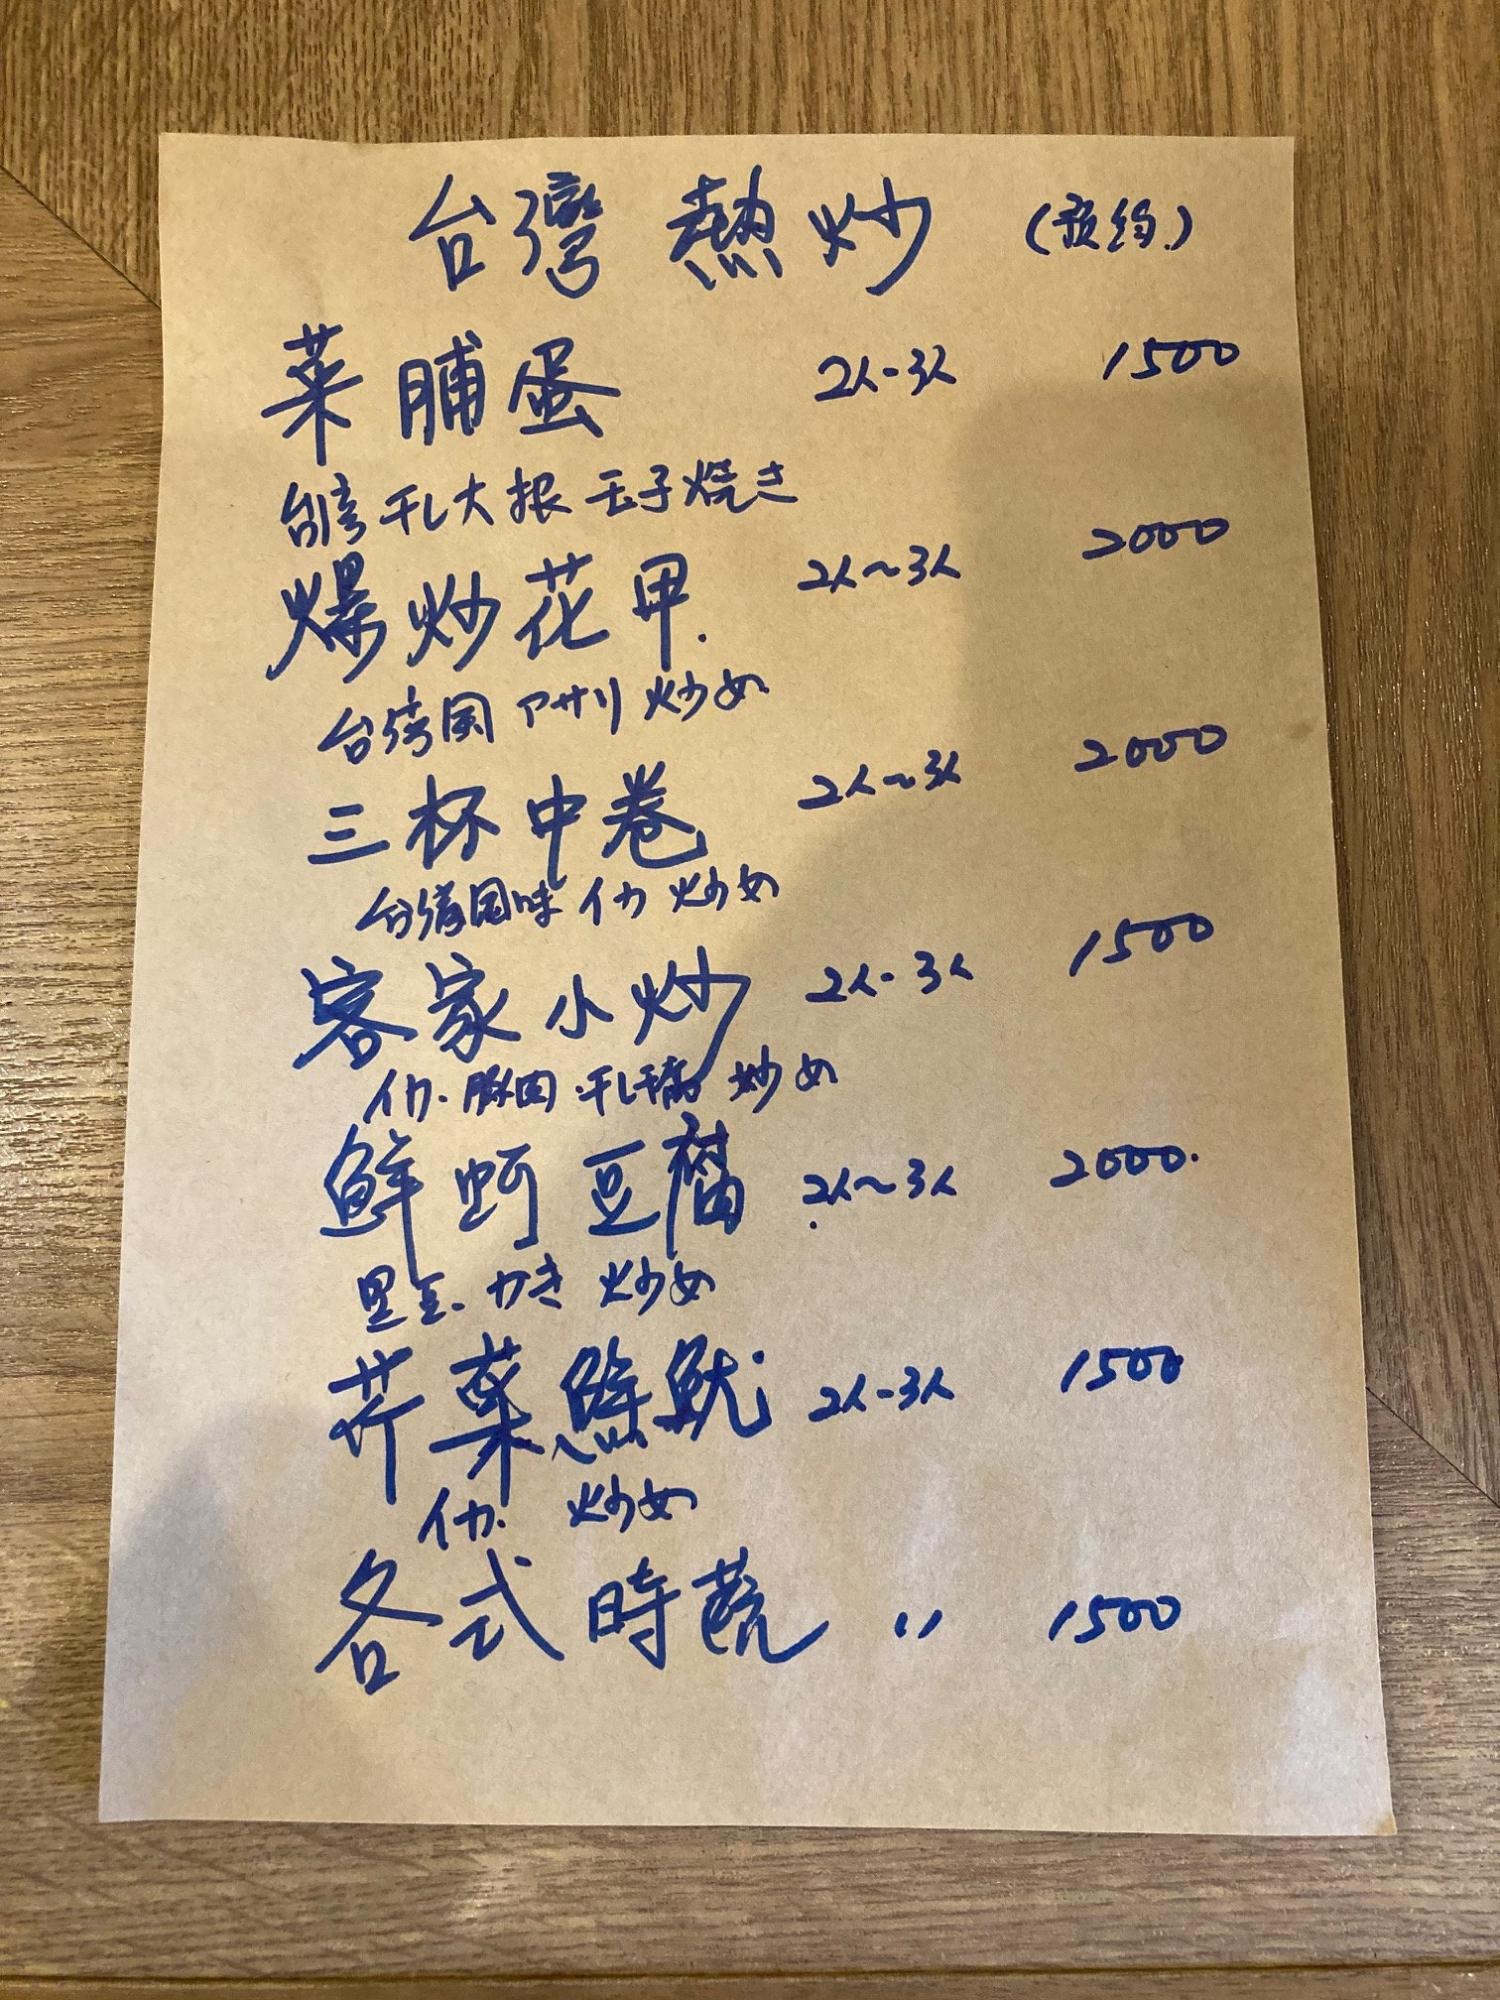 台灣 熱炒 (预約)
菜脯蛋 2人-3人 1500
台湾 干し大根 玉子焼き
爆炒花甲. 2人~3人 2000
台湾風 アサリ 炒め
三杯中卷 2人~3人 2000
台湾風味 イカ 炒め
客家小炒 2人-3人 1500
イカ・豚肉・干し 炒め
鮮蚵豆腐 2人~3人 2000.
豆豆・かき 炒め
芹菜魷 2人-3人 1500
イカ. 炒め
各式時蔬 〃 1500